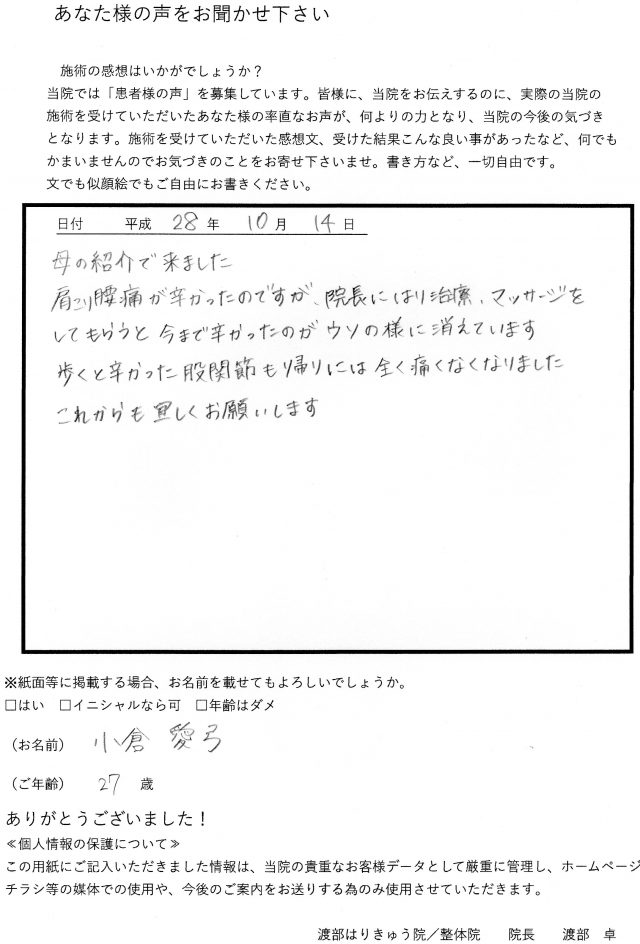 あなた様の声をお聞かせ下さい
施術の感想はいかがでしょうか？
当院では「患者様の声」を募集しています。皆様に、当院をお伝えするのに、実際の当院の
施術を受けていただいたあなた様の率直なお声が、何よりの力となり、当院の今後の気づき
となります。施術を受けていただいた感想文、受けた結果こんな良い事があったなど、何でも
かまいませんのでお気づきのことをお寄せ下さいませ。書き方など、一切自由です。
文でも似顔絵でもご自由にお書きください。
日付 平成 28 年 10 月 14 日
母の紹介で来ました
肩こり腰痛が辛かったのですが、院長にはり治療、マッサージを
してもらうと今まで辛かったのがウソの様に消えています
歩くと辛かった股関節も帰りには全く痛くなくなりました
これからも宜しくお願いします
※紙面等に掲載する場合、お名前を載せてもよろしいでしょうか。
□はい □イニシャルなら可 □年齢はダメ
（お名前） 小倉 愛弓
（ご年齢） 27 歳
ありがとうございました！
≪個人情報の保護について≫
この用紙にご記入いただきました情報は、当院の貴重なお客様データとして厳重に管理し、ホームページ
チラシ等の媒体での使用や、今後のご案内をお送りする為のみ使用させていただきます。
渡部はりきゅう院／整体院 院長 渡部 卓